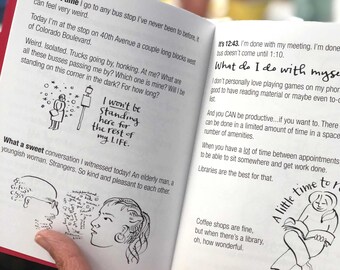 time I go to any bus stop I've never been to before, it
can feel very weird.
Today I'm at the stop on 40th Avenue a couple long blocks west
of Colorado Boulevard.
Weird. Isolated. Trucks going by, honking. At me? What are
all these busses passing me by? Which one is mine? Will I be
standing on this corner in the dark? For how long?
I WON'T BE
STANDING
HERE FOR
THE REST OF
MY LIFE.
What a sweet conversation I witnessed today! An elderly man, a
youngish woman. Strangers. So kind and pleasant to each other.
It's 12:43. I'm done with my meeting. I'm
but it doesn't come until 1:10.
What do I do with myse
I don't personally like playing games on my phon
to have reading material or maybe even to-d
list.
And you CAN be productive...if you want to. There
can be done in a limited amount of time in a space
number of amenities.
When you have a lot of time between appointments
to be able to sit somewhere and get work done.
Libraries are the best for that.
A little time to r
Coffee shops are fine,
but when there's a library,
oh, how wonderful.